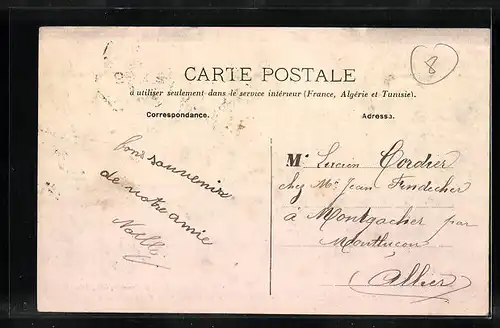 8
CARTE POSTALE
à utiliser seulement dans le service intérieur (France, Algérie et Tunisie).
Correspondance.
Adresse.
bons souvenirs
de notre amie
M. Lucien Cordier
chez Mr Jean
à Montgacher par
Montluçon
Allier